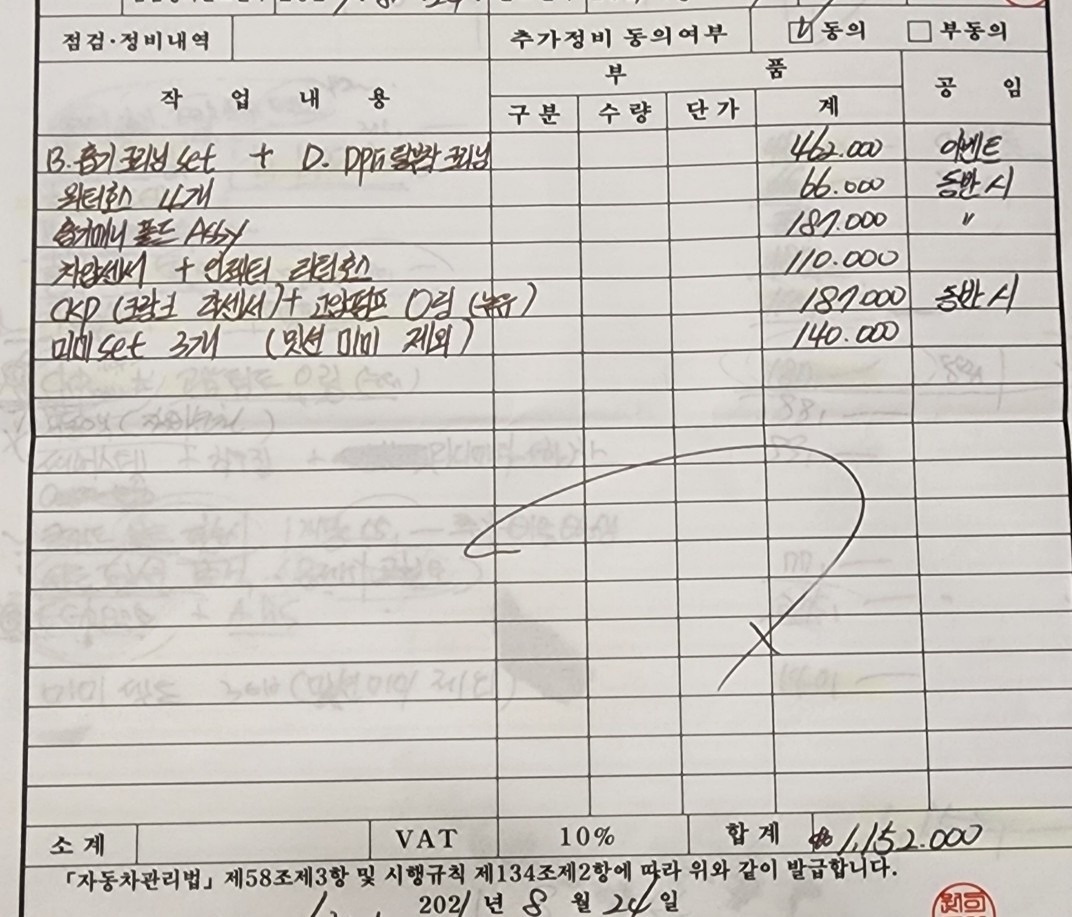 점검·정비내역 추가정비 동의여부 ☑ 동의 ☐ 부동의
작 업 내 용 부 품 공 임
구 분 수 량 단 가 계
B. 흡기 크리닝 set + D. DPF 탈부착 크리닝 462.000 이벤트
워터호스 4개 66.000 동반시
흡기매니폴드 Assy 187.000 〃
차압센서 + 인젝터 리턴호스 110.000
CKP (크랑크 각센서) + 고압펌프 O링 (누유) 187.000 동반시
미미 set 3개 (밋션 미미 제외) 140.000
소 계 VAT 10% 합 계 ₩1,152.000
「자동차관리법」 제58조제3항 및 시행규칙 제134조제2항에 따라 위와 같이 발급합니다.
2021 년 8 월 24 일